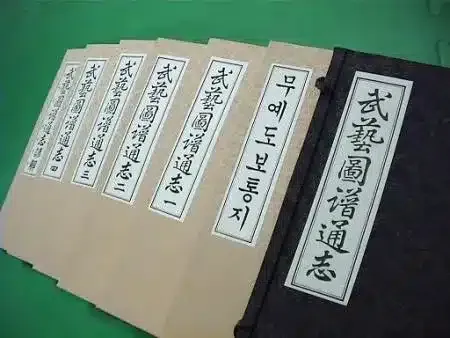 武藝圖譜通志
무예도보통지
武藝圖譜通志一
武藝圖譜通志二
武藝圖譜通志三
武藝圖譜通志四
武藝圖譜通志